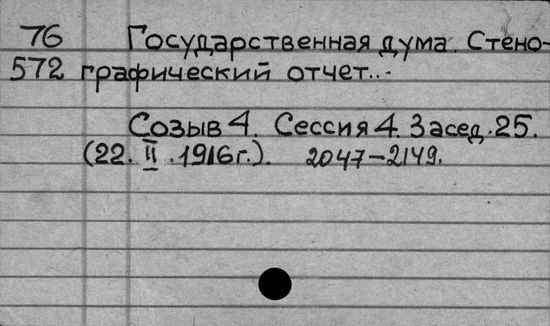 76 Государственная дума. Стено-
572 графический отчет...
Созыв 4. Сессия 4. Засед. 25.
(22. II. 1916 г.). 2047-2149.